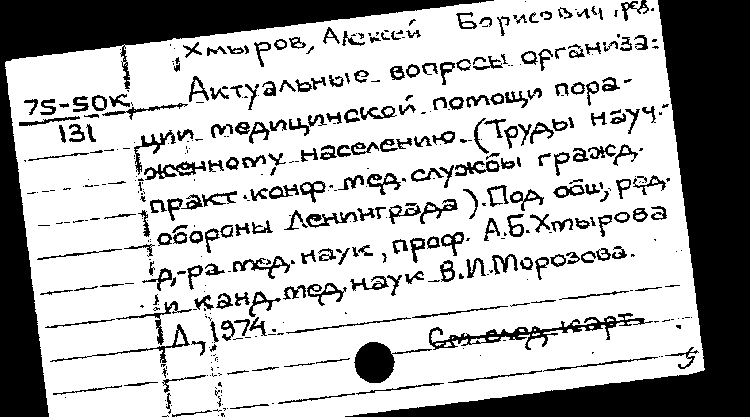 Хмыров, Алексей Борисович, ред.
75-50К
131
Актуальные вопросы организа-
ции медицинской помощи пора-
женному населению. (Труды науч.-
практ. конф. мед. службы гражд.
обороны Ленинграда). Под общ. ред.
д-ра мед. наук, проф. А.Б. Хмырова
и канд. мед. наук В.И. Морозова.
Л., 1974.
См. след. карт.